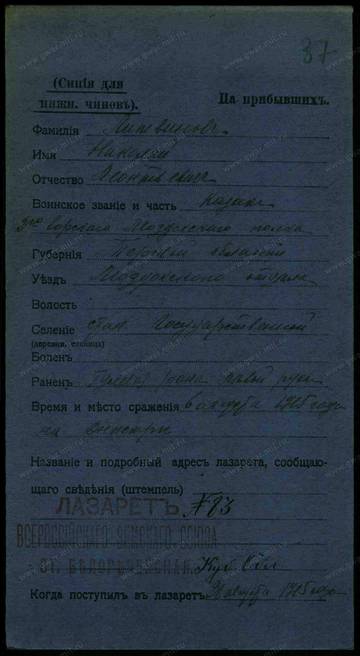 37
(Синія для
нижн. чиновъ).
На прибывшихъ.
Фамилія Литвиновъ
Имя Николай
Отчество Леонтьевичъ
Воинское званіе и часть Казакъ
Горскаго Моздокскаго полка
Губернія Терской области
Уѣздъ Моздокскаго отдѣла
Волость
Селеніе стан. Государственной
(деревня, станица)
Боленъ
Раненъ Пулевая рана правой руки
Время и мѣсто сраженія 6 августа 1915 года
на Днестре
Названіе и подробный адресъ лазарета, сообщаю-
щаго свѣдѣнія (штемпель)
ЛАЗАРЕТЪ №93
ВСЕРОССІЙСКАГО ЗЕМСКАГО СОЮЗА
СТ. БЕЛОРѢЧЕНСКАЯ. Куб. Обл
Когда поступилъ въ лазаретъ августа 1915 года